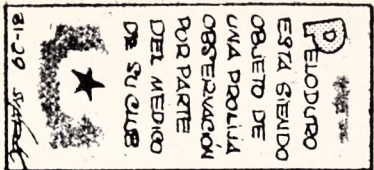 PELODURO
ESTÁ SIENDO
OBJETO DE
UNA PROLIJA
OBSERVACIÓN
POR PARTE
DEL MEDICO
DE SU CLUB